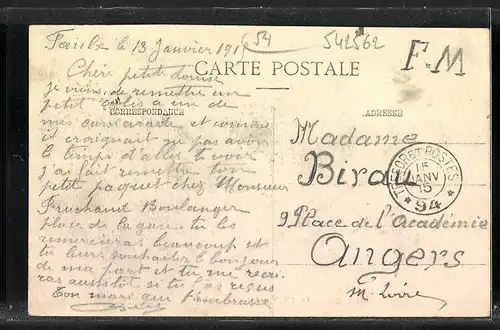 le 13 Janvier 191
54
542562
F.M
CARTE POSTALE
Chère petite
je viens de remettre un
petit colis a un de
CORRESPONDANCE
ADRESSE
mes camarades et comme
il craignait ne pas avoir
le temps d'aller te voir
j'ai fait remettre ton
petit paquet chez Monsieur
Fruchaud Boulanger
place de la gare tu les
remercieras beaucoup et
leur souhaiter le bonjour
de ma part et tu me récri
ras aussitôt si tu les reçus
Ton mari qui t'embrasse
Madame
Birau
TRESOR ET POSTES
15
JANV
15
* 94 *
9 Place de l'Académie
Angers
M. Loire